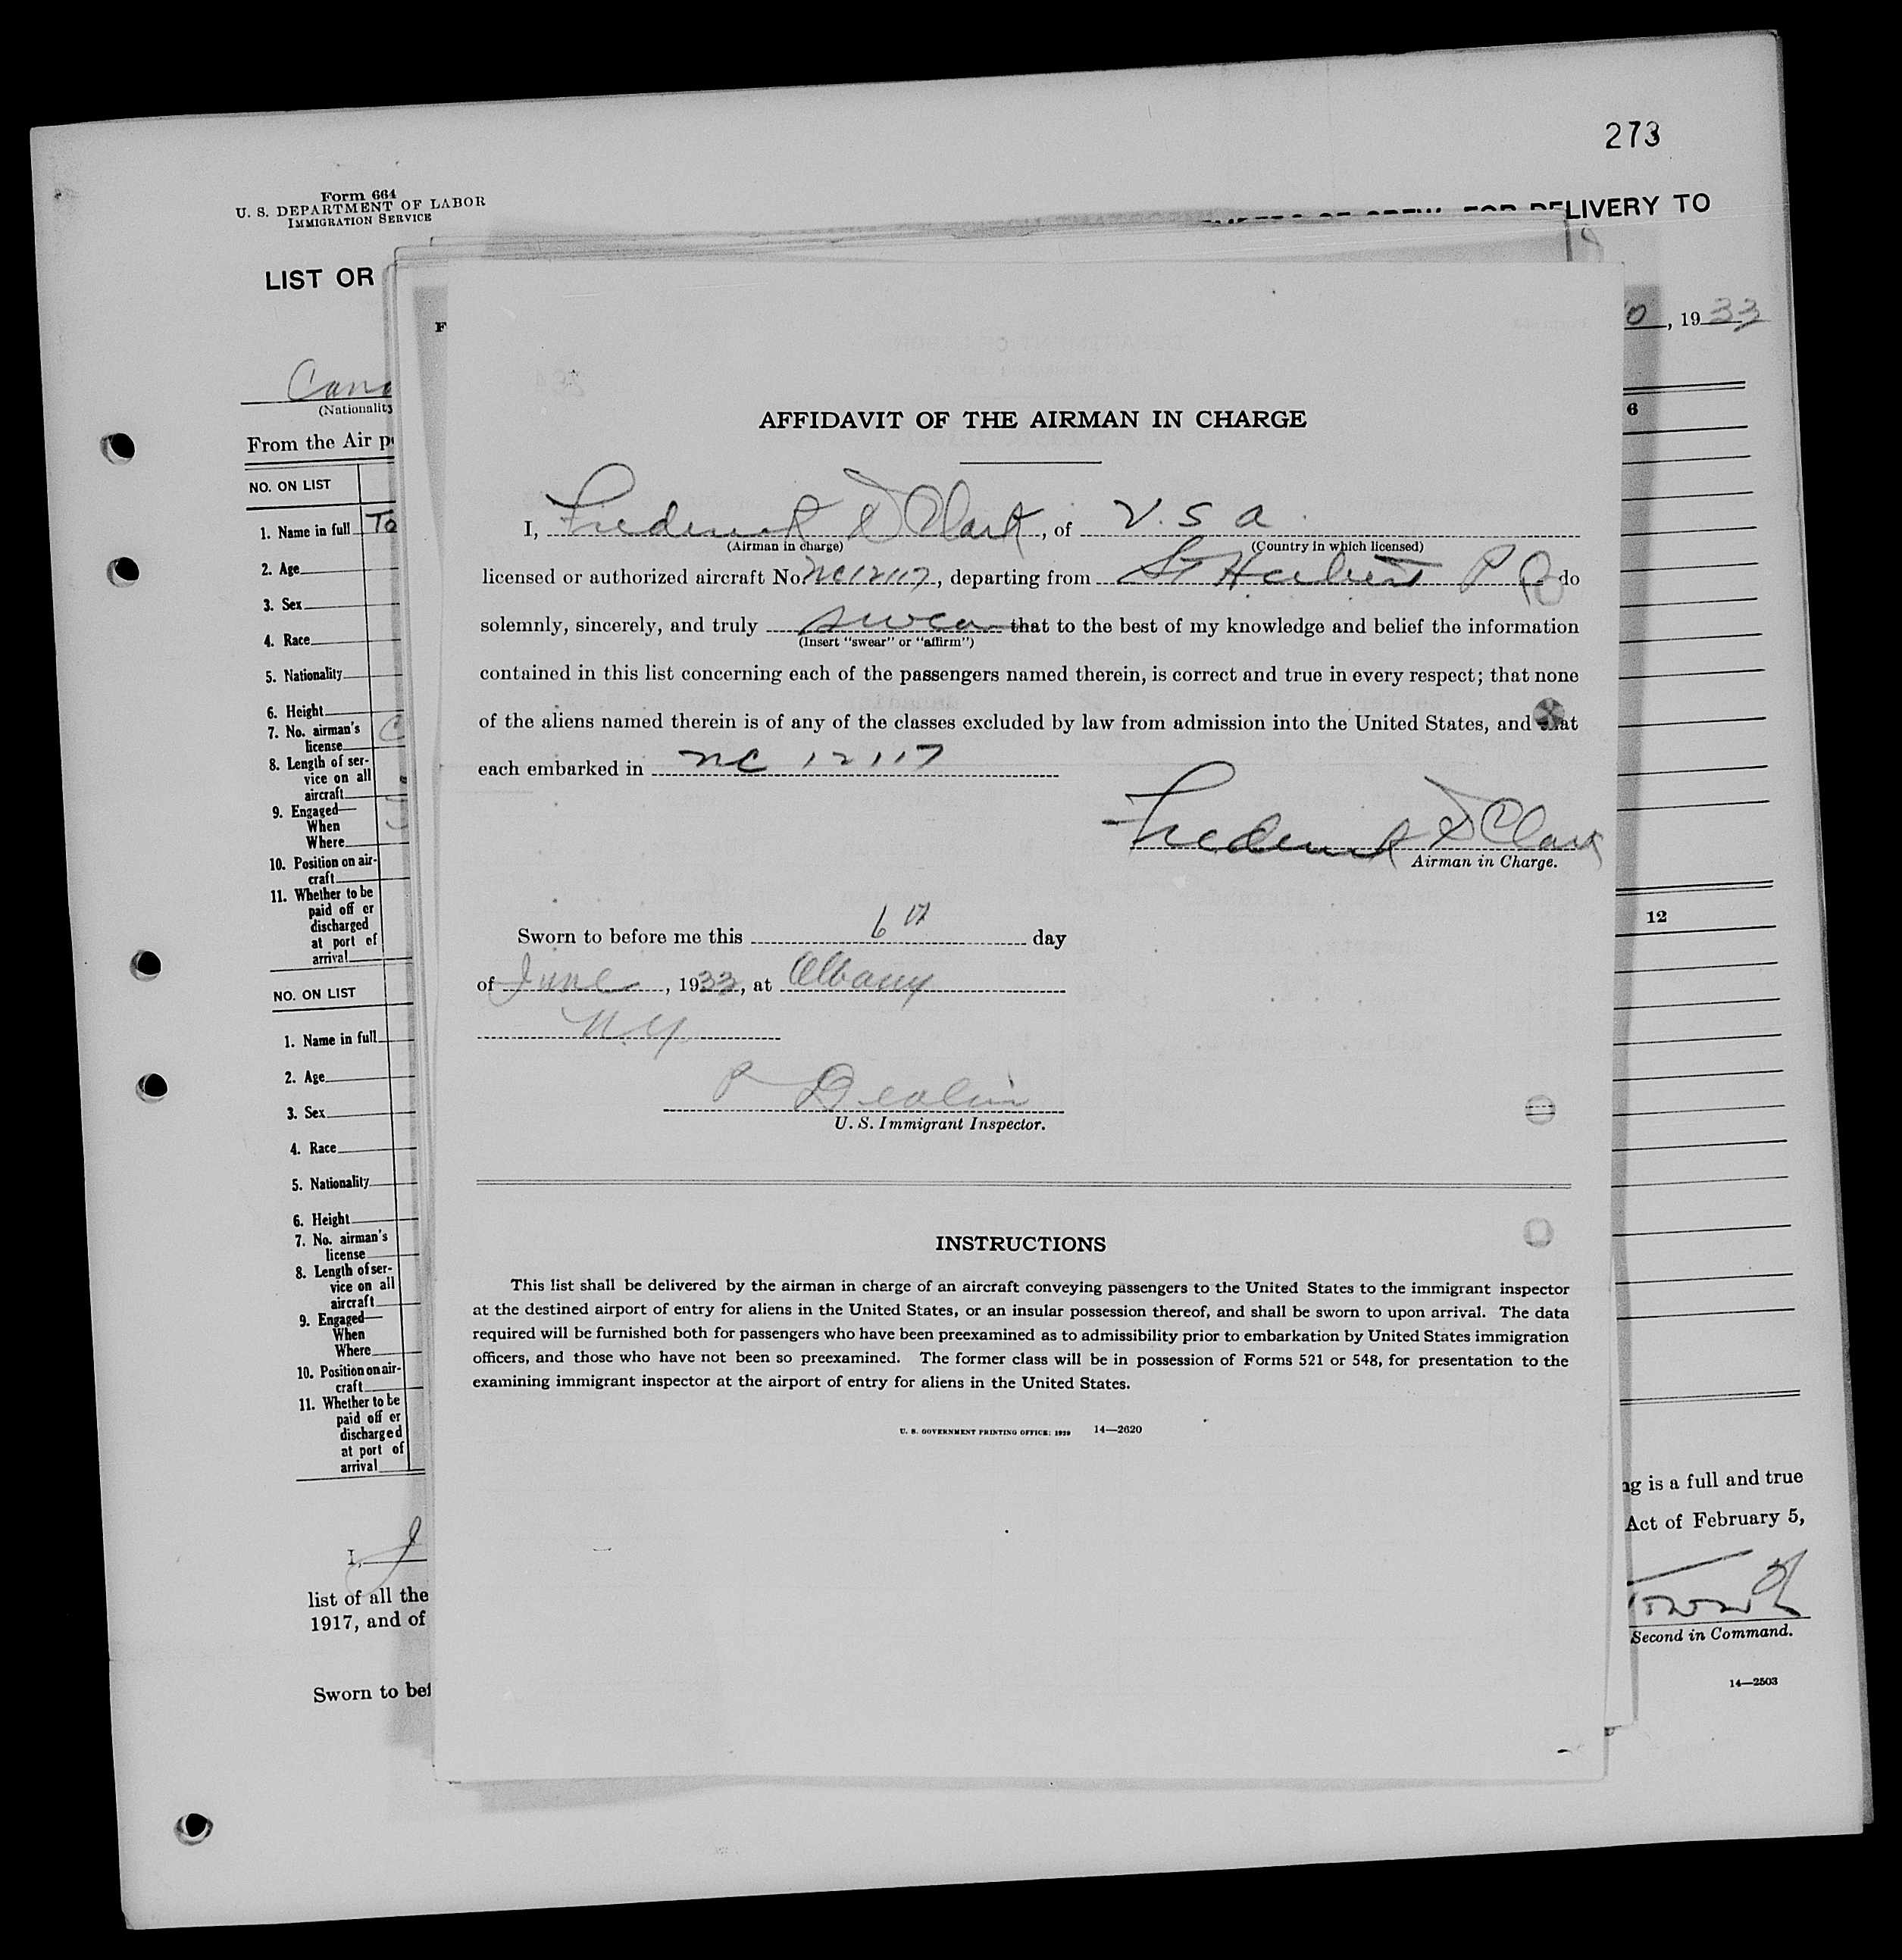 273
Form 664
U. S. DEPARTMENT OF LABOR
IMMIGRATION SERVICE
LIVERY TO
LIST OR
0, 1933
(Nationality
From the Air p
6
NO. ON LIST
1. Name in full To
2. Age
3. Sex
4. Race
5. Nationality
6. Height
7. No. airman's
license
8. Length of ser-
vice on all
aircraft
9. Engaged—
When
Where
10. Position on air-
craft
11. Whether to be
paid off or
discharged
at port of
arrival
12
NO. ON LIST
1. Name in full
2. Age
3. Sex
4. Race
5. Nationality
6. Height
7. No. airman's
license
8. Length of ser-
vice on all
aircraft
9. Engaged—
When
Where
10. Position on air-
craft
11. Whether to be
paid off or
discharged
at port of
arrival
I, J
list of all the
1917, and of
Sworn to bef
ng is a full and true
Act of February 5,
Second in Command.
14—2503
F
AFFIDAVIT OF THE AIRMAN IN CHARGE
I, Frederick D Clark, of U. S. A.
(Airman in charge) (Country in which licensed)
licensed or authorized aircraft No. NC12117, departing from St Hubert P Q do
solemnly, sincerely, and truly swear that to the best of my knowledge and belief the information
(Insert "swear" or "affirm")
contained in this list concerning each of the passengers named therein, is correct and true in every respect; that none
of the aliens named therein is of any of the classes excluded by law from admission into the United States, and that
each embarked in NC 12117
Frederick D Clark
Airman in Charge.
Sworn to before me this 6th day
of June, 1933, at Albany
N.Y.
U. S. Immigrant Inspector.
INSTRUCTIONS
This list shall be delivered by the airman in charge of an aircraft conveying passengers to the United States to the immigrant inspector
at the destined airport of entry for aliens in the United States, or an insular possession thereof, and shall be sworn to upon arrival. The data
required will be furnished both for passengers who have been preexamined as to admissibility prior to embarkation by United States immigration
officers, and those who have not been so preexamined. The former class will be in possession of Forms 521 or 548, for presentation to the
examining immigrant inspector at the airport of entry for aliens in the United States.
U. S. GOVERNMENT PRINTING OFFICE: 1929 14—2620